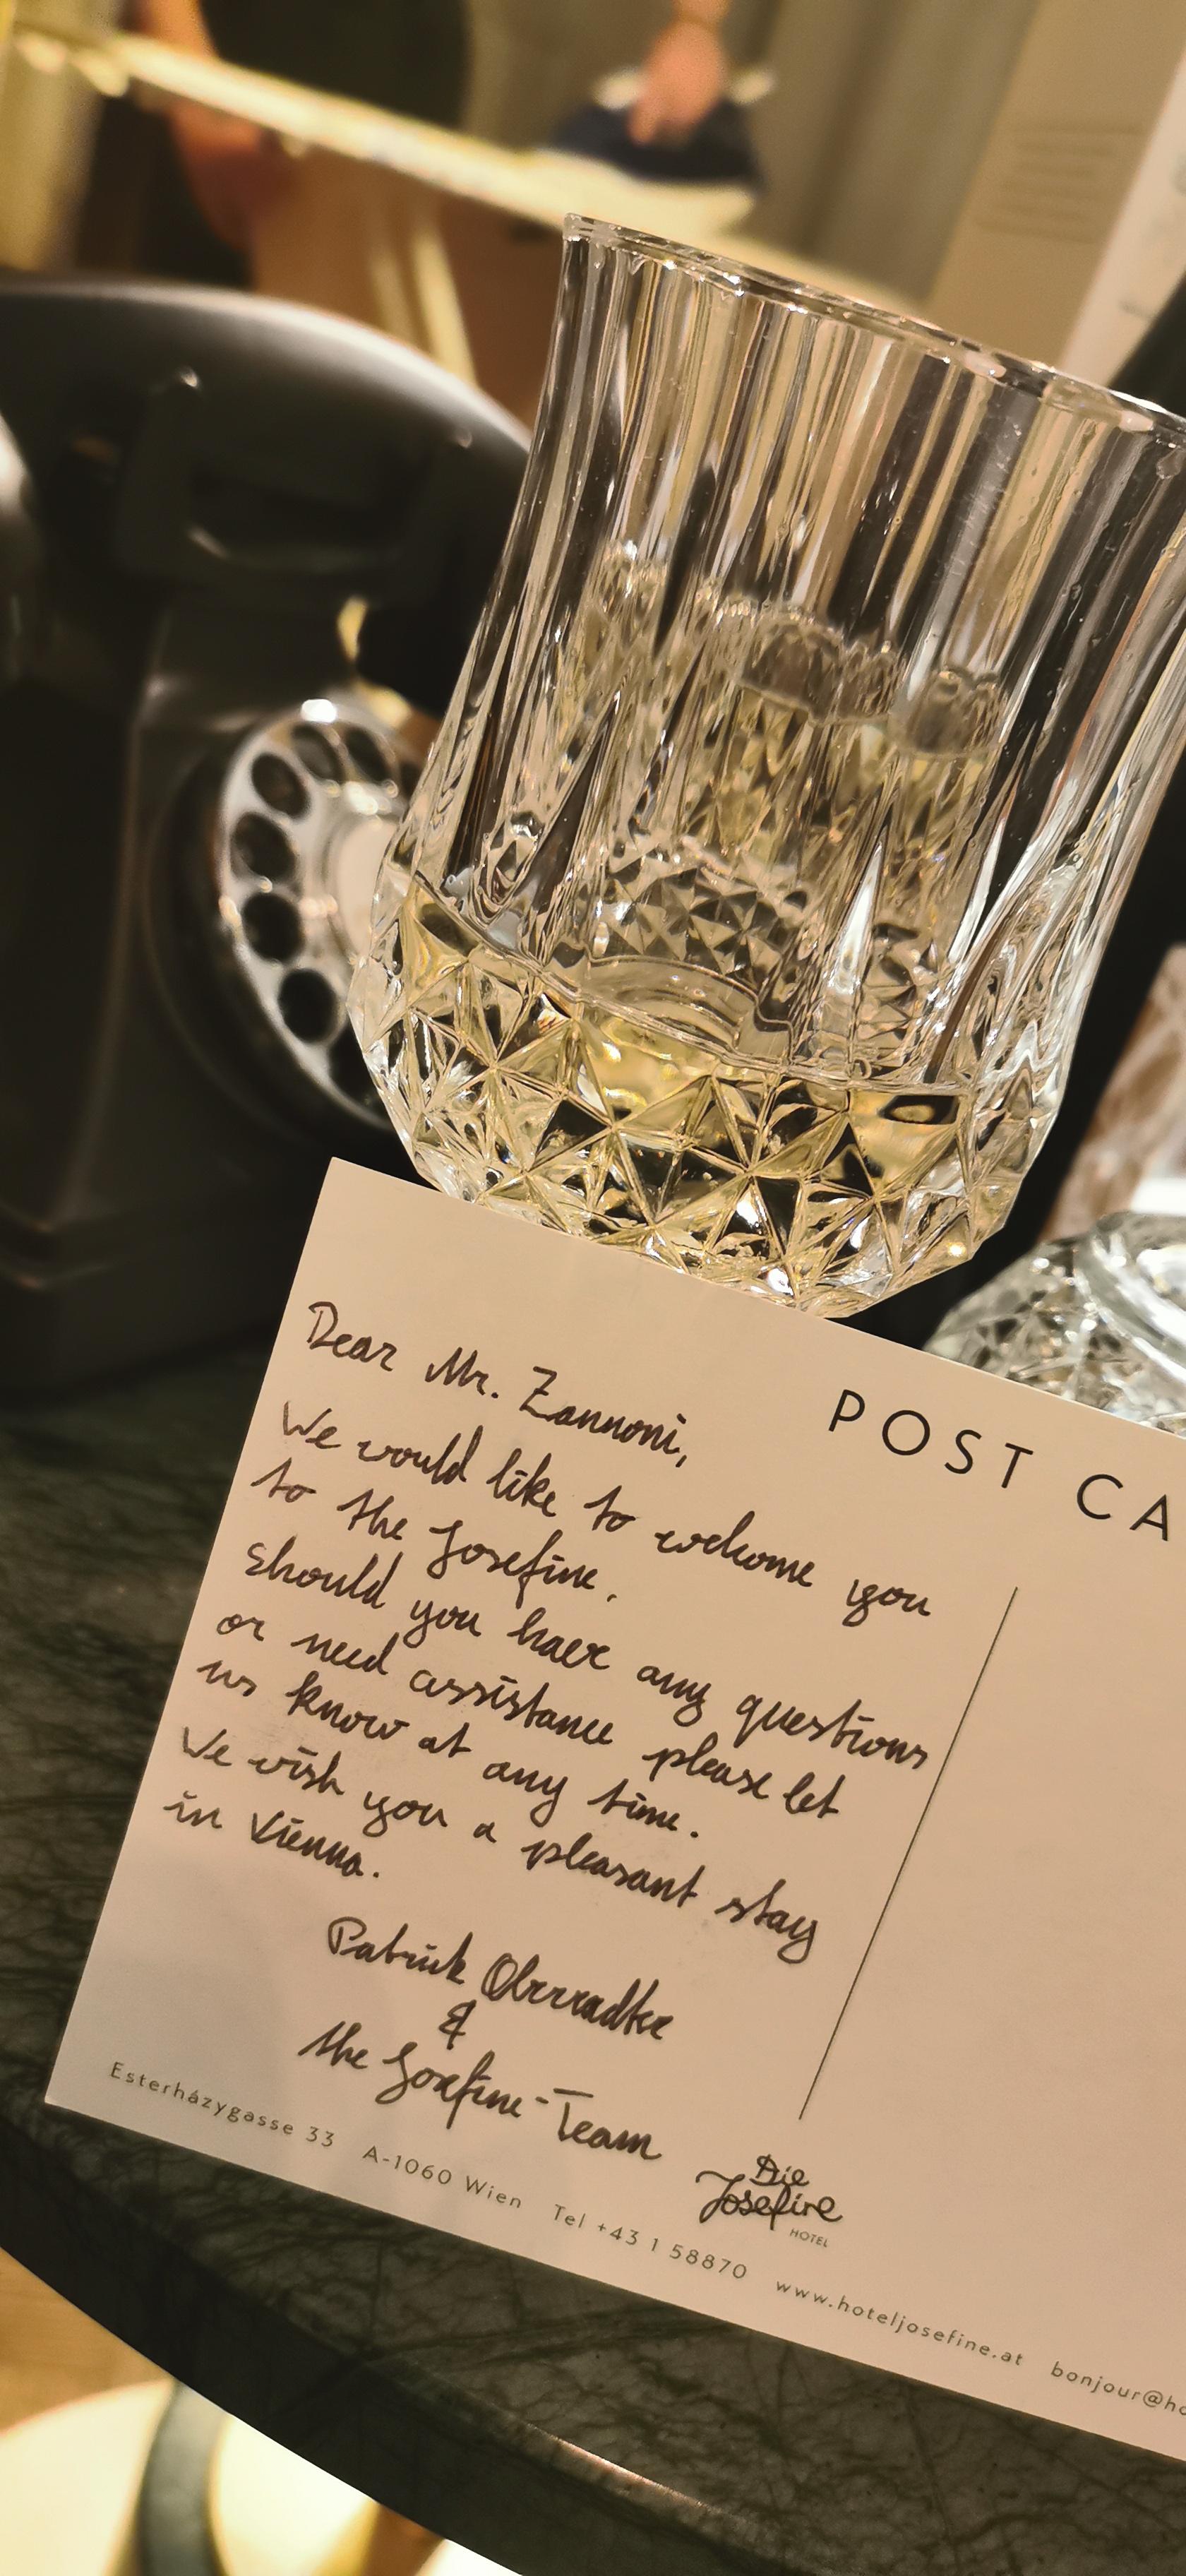 Dear Mr. Zannoni,
We would like to welcome you
to the Josefine.
Should you have any questions
or need assistance please let
us know at any time.
We wish you a pleasant stay
in Vienna.
Patrick
&
the Josefine-Team
POST CA
Die
Josefine
HOTEL
Esterházygasse 33 A-1060 Wien Tel +43 1 58870 www.hoteljosefine.at bonjour@ho